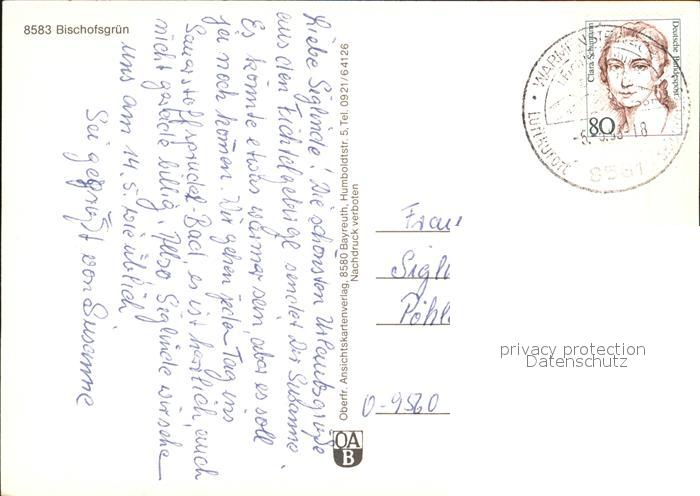 8583 Bischofsgrün
Liebe Siglinde! Die schönsten Urlaubsgrüße
aus dem Fichtelgebirge sendet Dir Susanne.
Es könnte etwas wärmer sein, aber es soll
ja noch kommen. Wir gehen jeden Tag ins
Sauerstoffsprudel-Bad, es ist herrlich, auch
nicht gerade billig. Also Siglinde wir sehen
uns am 14.5. wie üblich
Sei gegrüßt von Susanne
Oberfr. Ansichtskartenverlag, 8580 Bayreuth, Humboldtstr. 5, Tel. 0921/64126
Nachdruck verboten
OA
B
Clara Schumann
Deutsche Bundespost
80
LUFTKURORT
8581
Frau
Sigl
Pöhl
O-9560
privacy protection
Datenschutz